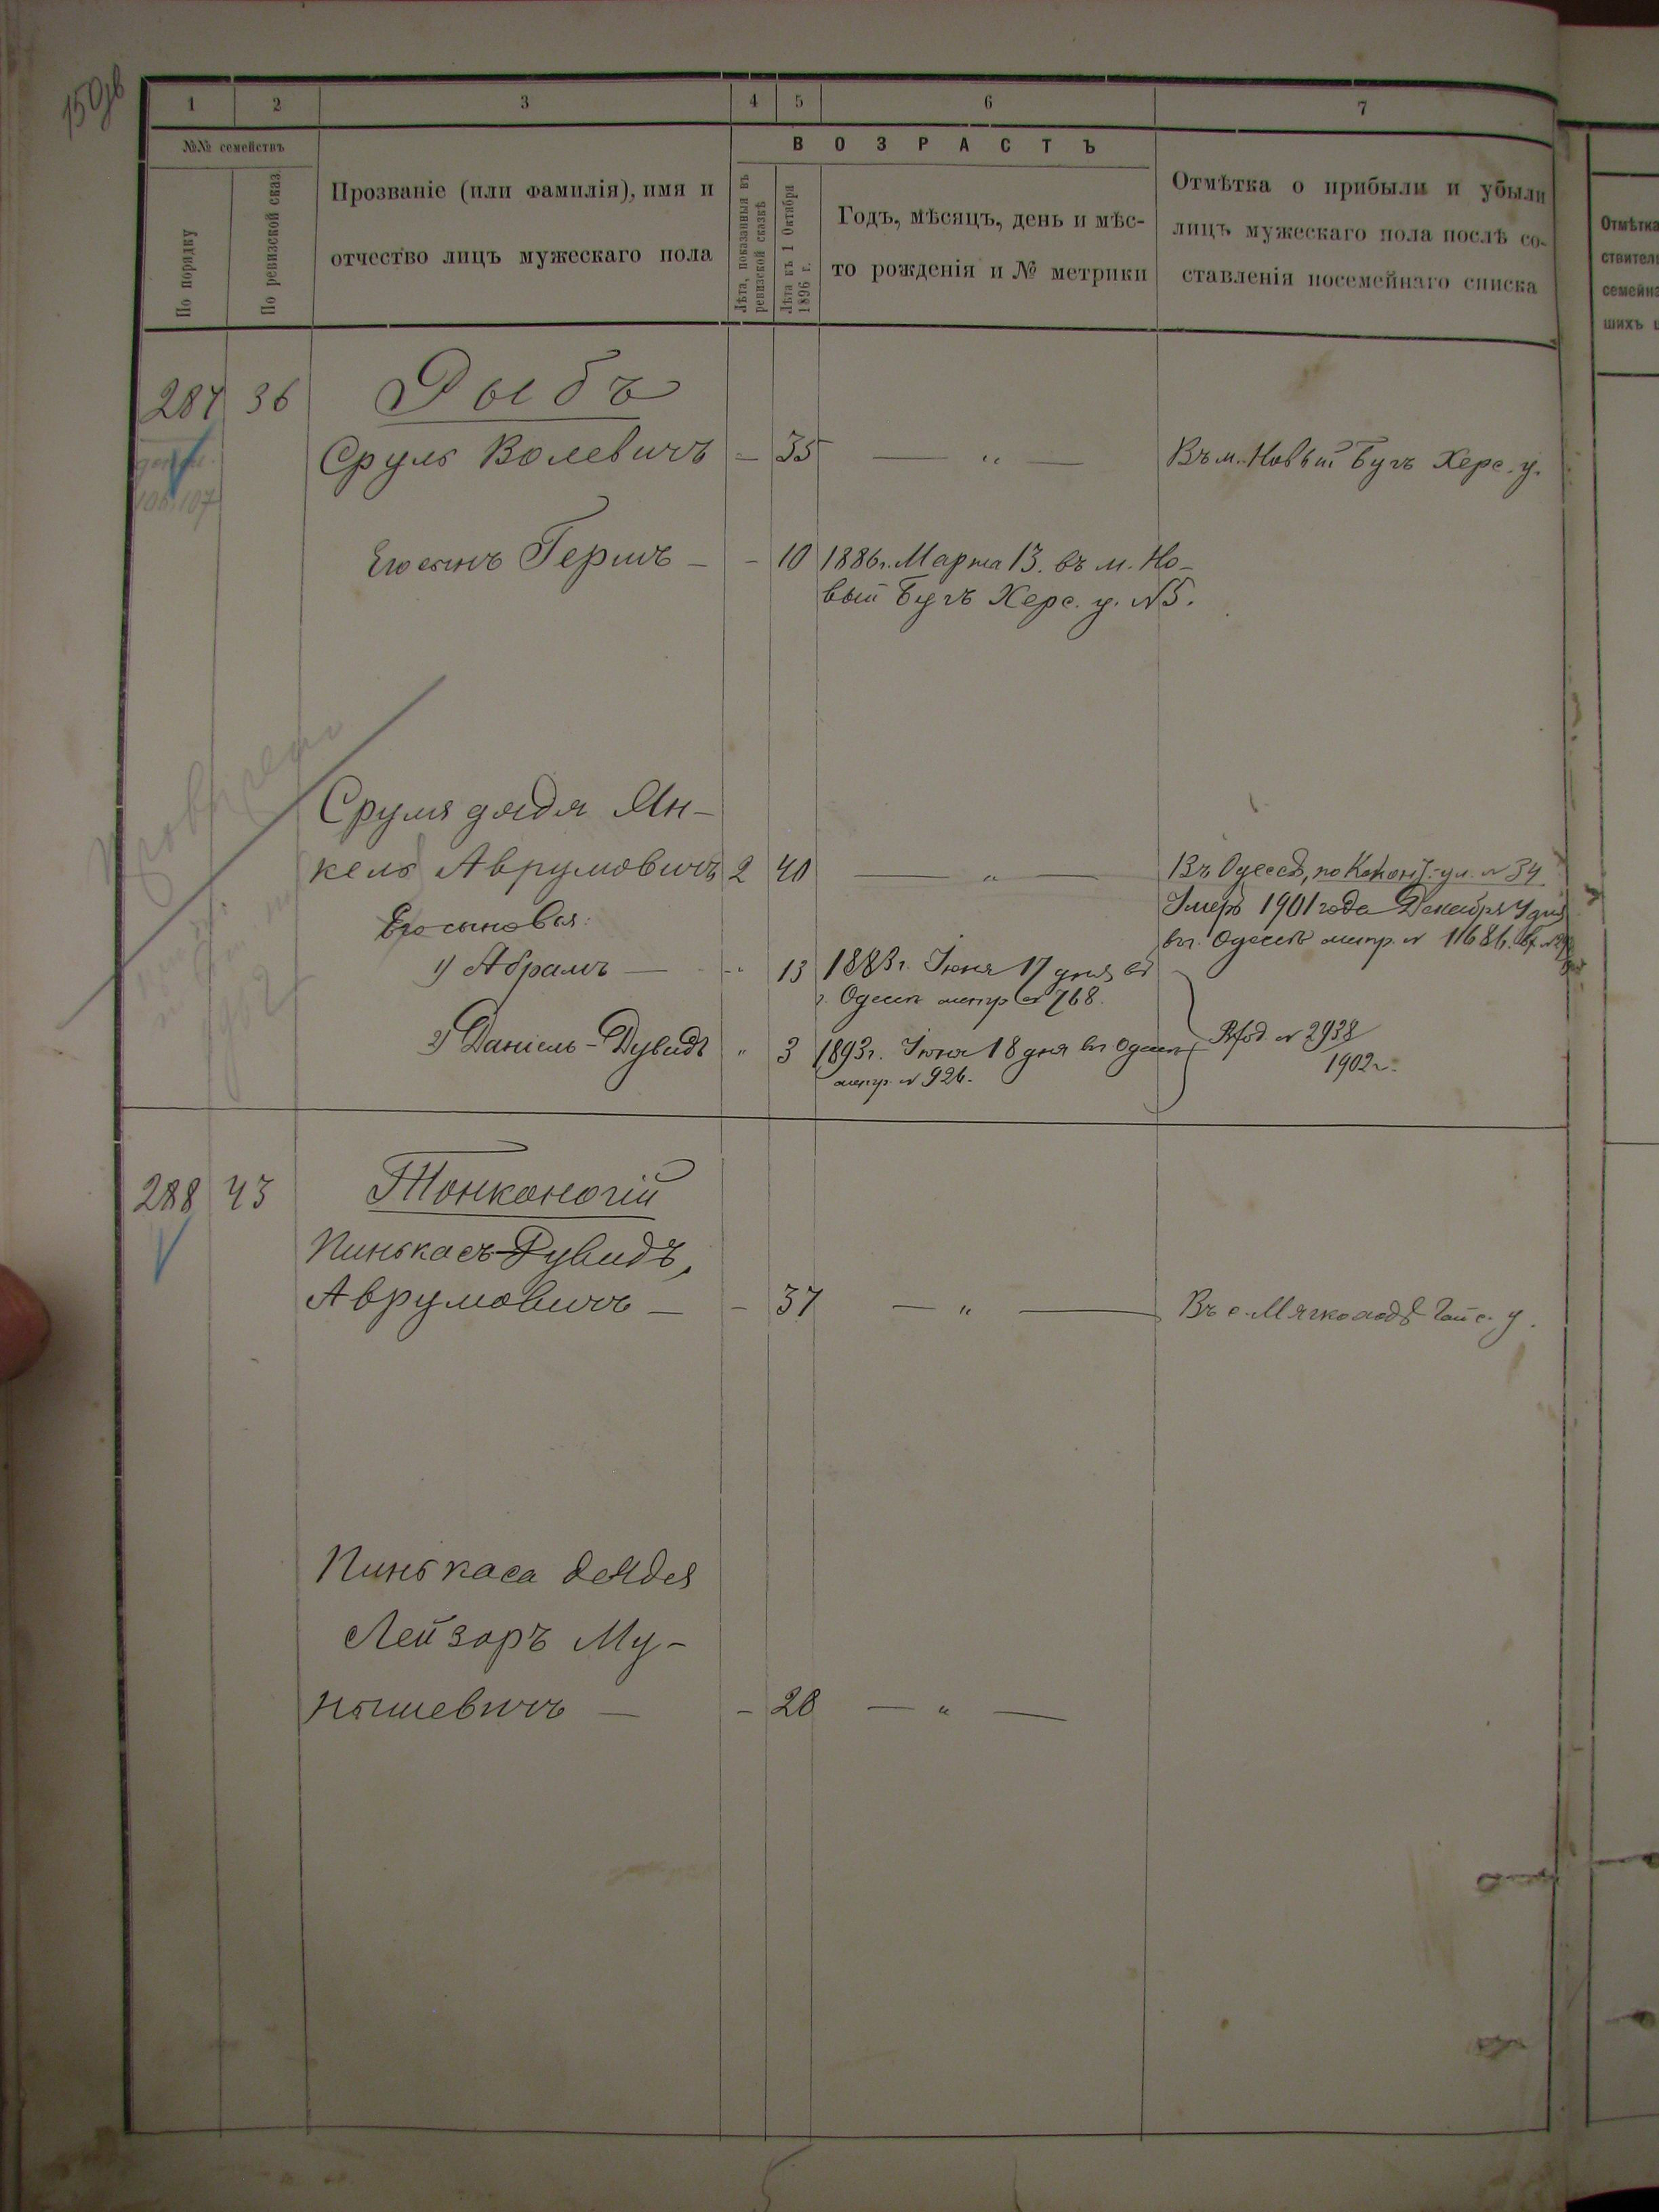 150об
1 2 3 4 5 6 7
№№ семействъ
По порядку
По ревизской сказ.
Прозваніе (или фамилія), имя и
отчество лицъ мужескаго пола
ВОЗРАСТЪ
Лѣта, показанныя въ
ревизской сказкѣ
Лѣта къ 1 Октября
1896 г.
Годъ, мѣсяцъ, день и мѣс-
то рожденія и № метрики
Отмѣтка о прибыли и убыли
лицъ мужескаго пола послѣ со-
ставленія посемейнаго списка
Отмѣтка
ствител
семейн
шихъ
287 36 Рыбъ
Сруль Волевичъ – 35 — " — Въ м. Новый Бугъ Херс. у.
106.107
Его сынъ Гершъ – – 10 1886 г. Марта 13. въ м. Но-
вый Бугъ Херс. у. №5.
Сруля дядя Ян-
кель Аврумовичъ 2 40 — " — Въ Одессѣ, по ул. № 34
Умеръ 1901 года Декабря 7 дня
Его сыновья:
въ г. Одессѣ метр. № 1168
1) Абрамъ — " 13 1883 г. Іюня 17 дня въ
г. Одессѣ метр. № 768.
2) Даніель-Дувидъ " 3 1893 г. Іюня 18 дня въ Одессѣ
метр. № 926.
№ 2938
1902 г.
288 43 Тонконогій
Пинькасъ-Дувидъ,
Аврумовичъ — – 37 — " — Въ с. Мягкоходѣ Гайс. у.
Пинькаса дядя
Лейзоръ Му-
нышевичъ — – 28 — " —